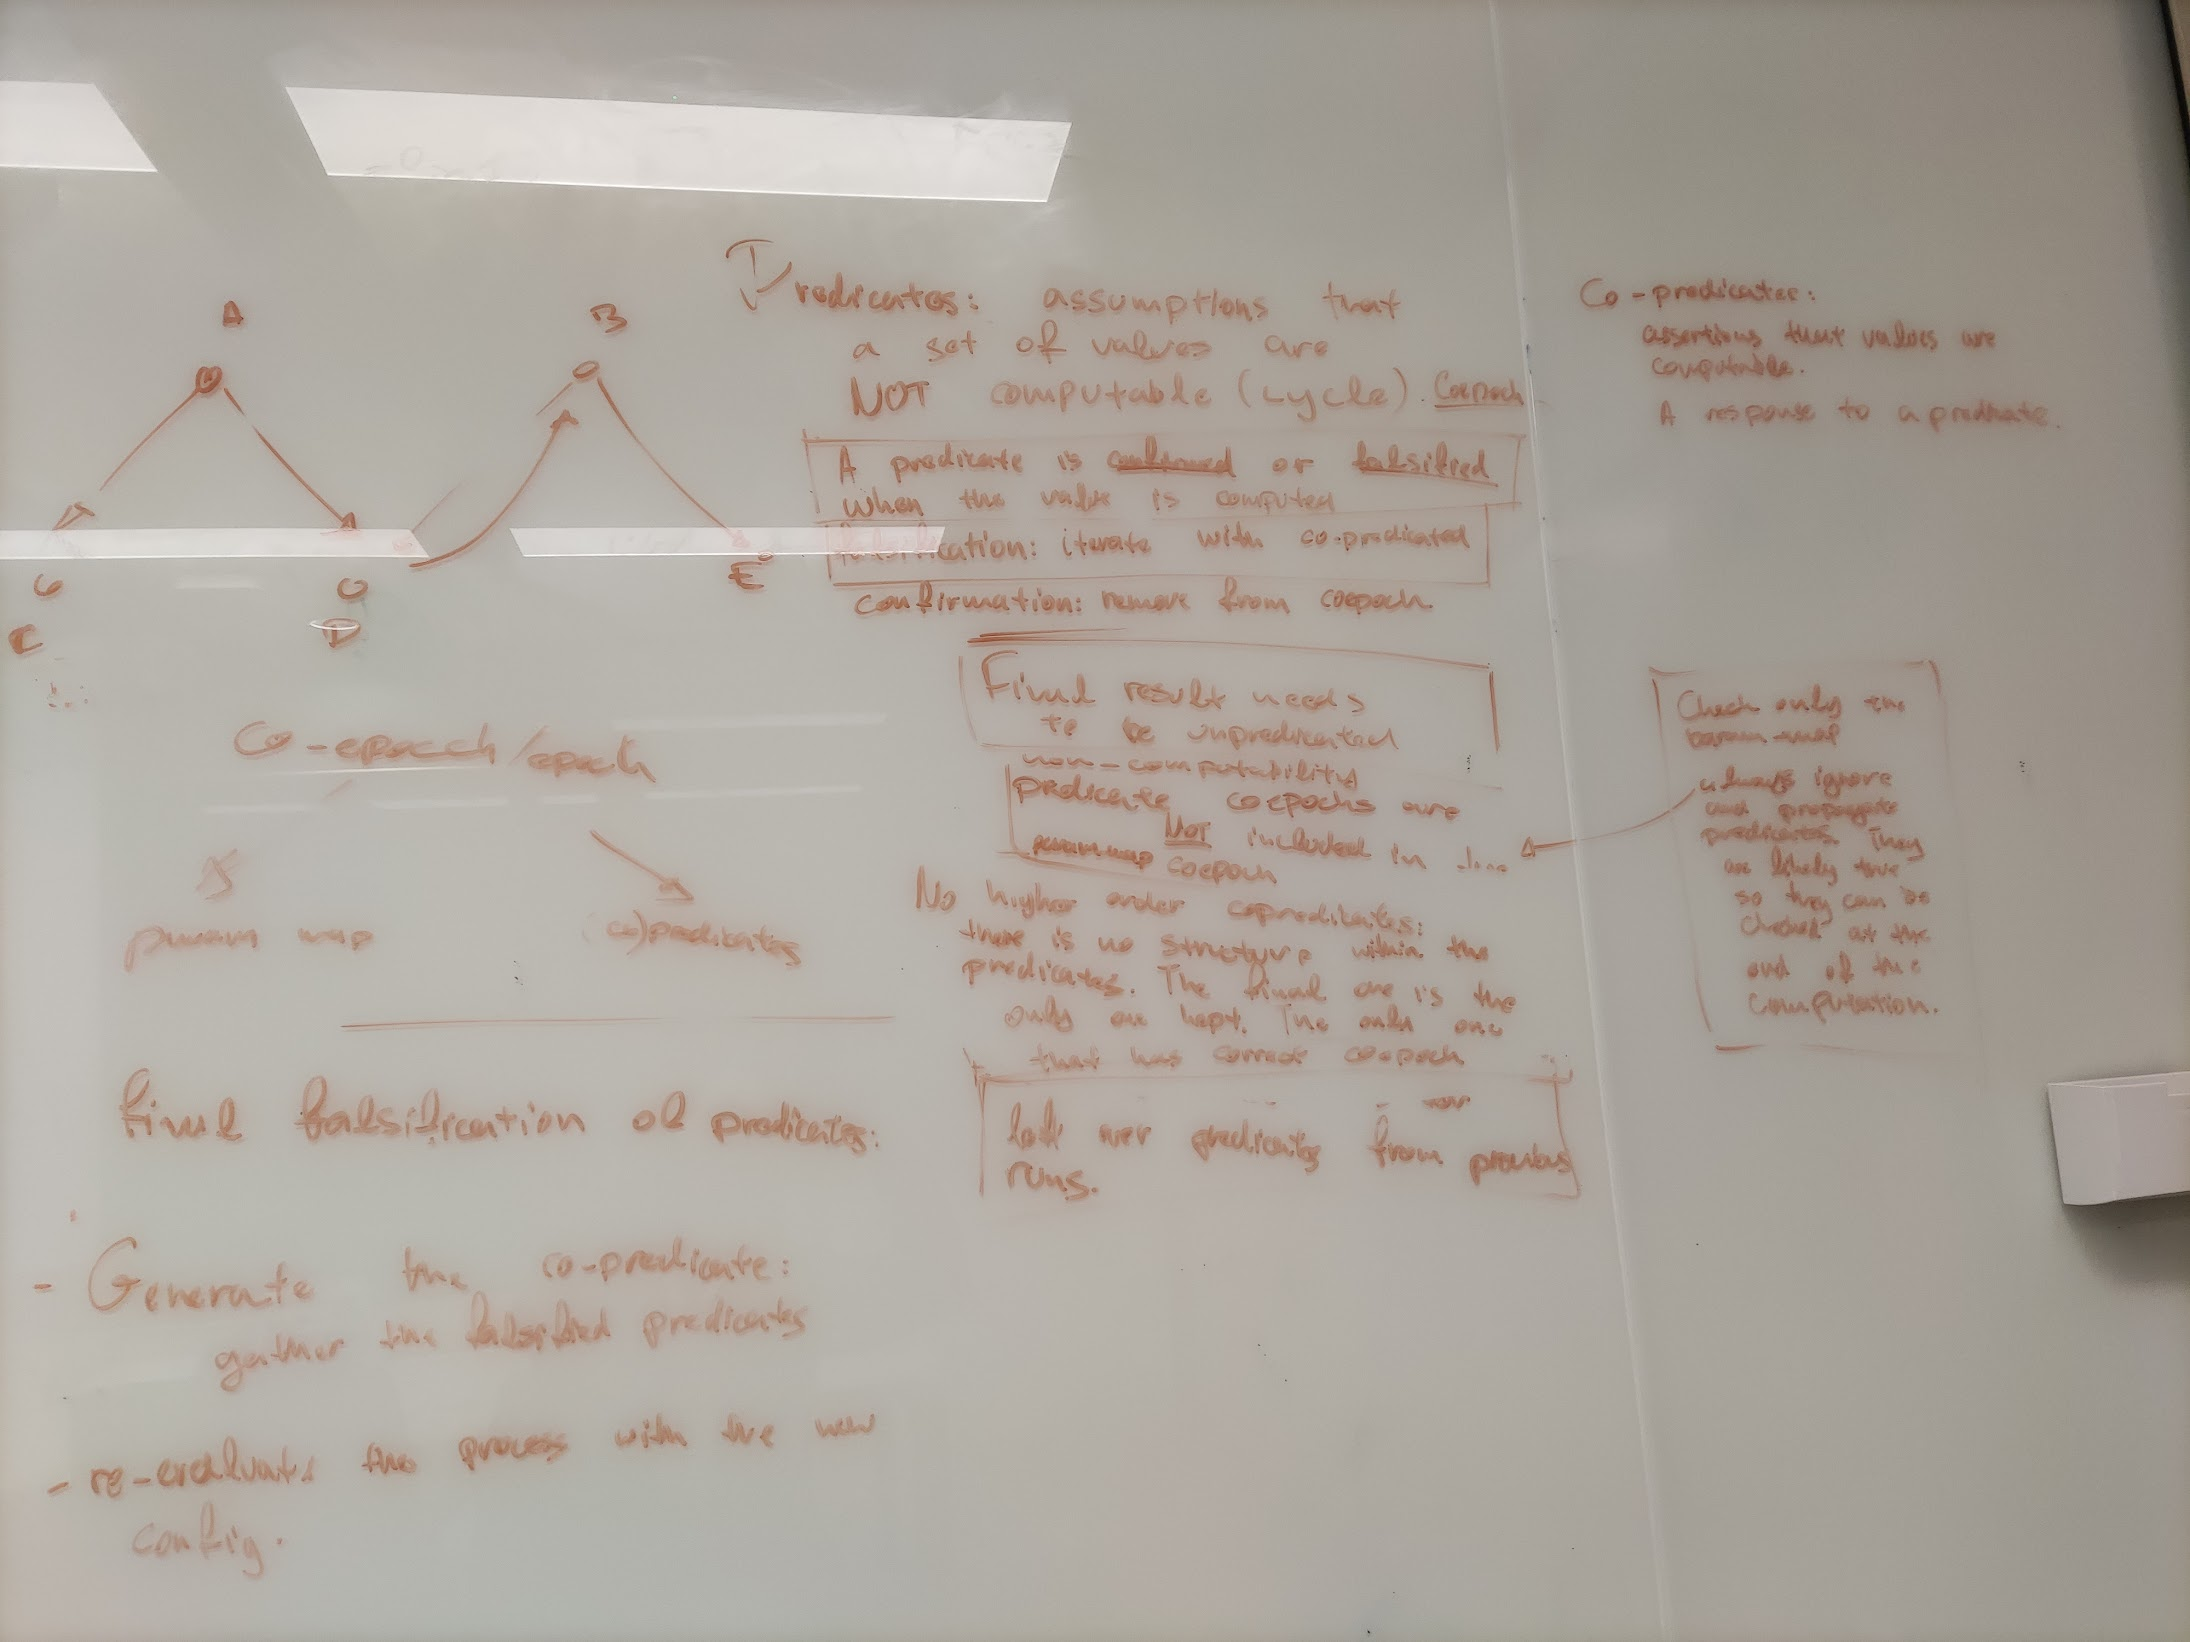 A
B
C
D
E
Co-epoch/epoch
param map
(co)predicates
final falsification of predicates:
- Generate the co-predicate:
gather the falsified predicates
- re-evaluate the process with the new
config.
Predicates: assumptions that
a set of values are
NOT computable (cycle). Coepoch
A predicate is confirmed or falsified
when the value is computed
falsification: iterate with co-predicated
confirmation: remove from coepoch.
Final result needs
to be unpredicated
non-computability
predicate coepochs are
NOT included in
param map coepoch
No higher order copredicates:
there is no structure within the
predicates. The final one is the
only one kept. The only one
that has correct coepoch
predicates from previous
runs.
Co-predicates:
assertions that values are
computable.
A response to a predicate.
Check only the
param map
always ignore
and propagate
predicates. They
are likely true
so they can be
checked at the
end of the
computation.